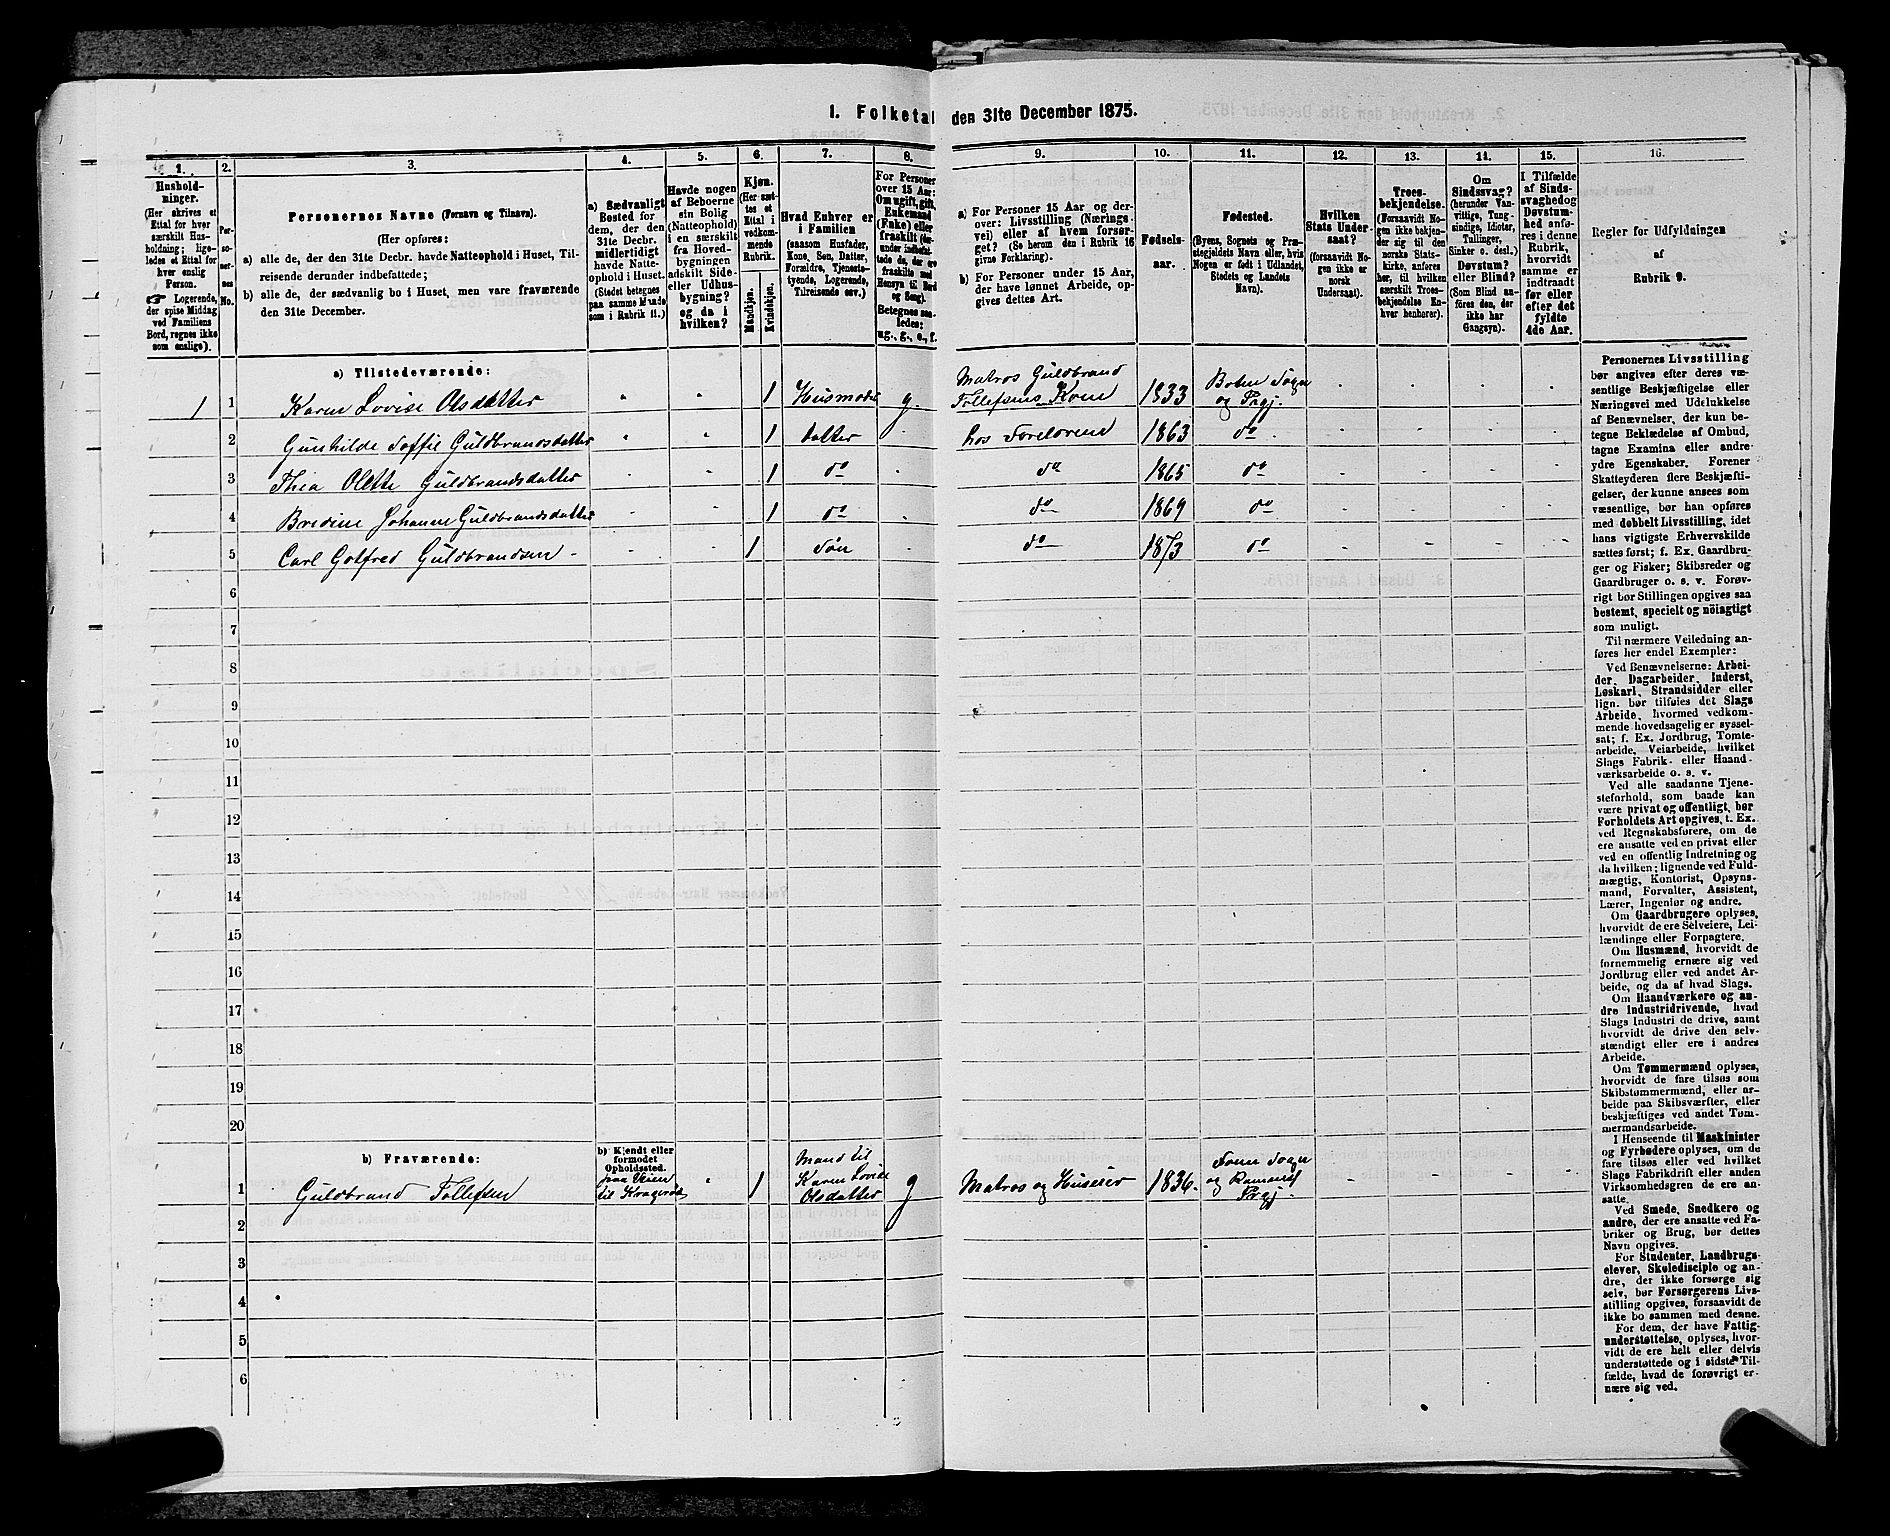 1. Folketal den 31te December 1875.
1. 2. 3. 4. 5. 6. 7. 8. 9. 10. 11. 12. 13. 14. 15. 16.
Hushold-
ninger.
(Her skrives et
Ettal for hver
særskilt Hus-
holdning; lige-
ledes et Ettal
for hver
enslig
Person.
☞ Logerende,
der spise Middag
ved Familiens
Bord, regnes ikke
som enslige).
Per-
so-
ner-
nes
No.
Personernes Navne (Fornavn og Tilnavn).
(Her opføres:
a) alle de, der den 31te Decbr. havde Natteophold i Huset, Til-
reisende derunder indbefattede;
b) alle de, der sædvanlig bo i Huset, men vare fraværende
den 31te December.
a) Sædvanligt
Bosted for
dem, der den
31te Decbr.
midlertidigt
havde Natte-
ophold i Huset.
(Stedet betegnes
paa samme Maade
som i Rubrik 11.)
Havde nogen
af Beboerne
sin Bolig
(Natteophold)
i en særskilt
fra Hoved-
bygningen
adskilt Side-
eller Udhus-
bygning?
og da i
hvilken?
Kjøn.
(Her sæt-
tes et
Ettal i
vedkom-
mende
Rubrik.
Mandkjøn.
Kvindekjøn.
Hvad Enhver er
i Familien
(saasom Husfader,
Kone, Søn, Datter,
Forældre, Tjeneste-
tyende, Logerende,
Tilreisende osv.)
For Personer
over 15 Aar:
Om ugift, gift,
Enkemand
(Enke) eller
fraskilt (der-
under indbefat-
tede de, der ere
fraskilte med
Hensyn til Bord
og Seng).
Betegnes saa-
ledes:
ug., g., e., f.
a) For Personer 15 Aar og der-
over: Livsstilling (Nærings-
vei) eller af hvem forsør-
get? (Se herom den i Rubrik 16
givne Forklaring).
b) For Personer under 15 Aar,
der have lønnet Arbeide, op-
gives dettes Art.
Fødsels-
aar.
Fødested.
(Byens, Sognets og Præ-
stegjeldets Navn eller, hvis
Nogen er født i Udlandet,
Stedets og Landets
Navn).
Hvilken
Stats Under-
saat?
(forsaavidt No-
gen ikke er
norsk
Undersaat).
Troes-
bekjendelse.
(Forsaavidt No-
gen ikke bekjen-
der sig til den
norske Stats-
kirke, anføres
her, til hvilken
særskilt Troes-
bekjendelse En-
hver henhører).
Om
Sindssvag?
(herunder Van-
vittige, Tung-
sindige, Idioter,
Tullinger,
Sinker o. desl.).
Døvstum?
eller Blind?
(Som Blind an-
føres den, der
ikke har
Gangsyn).
I Tilfælde
af Sinds-
svaghedog
Døvstum-
hed anfø-
res i denne
Rubrik,
hvorvidt
samme er
indtraadt
før eller
efter det
fyldte
4de Aar.
Regler for Udfyldningen
af
Rubrik 9.
a) Tilstedeværende:
1 1 Karen Lovise Olsdatter " " 1 Husmoder g. Matros Guldbrand Tollefsens Kone 1833 Botne Sogn og Prgj. - - - -
2 Gunhilde Soffie Guldbrandsdatter " " 1 datter - hos Foreldrene 1863 do - - - -
3 Thea Olette Guldbrandsdatter - - 1 do - do 1865 do - - - -
4 Bredine Johanne Guldbrandsdatter - - 1 do - do 1869 do - - - -
5 Carl Gotfred Guldbrandsen - - - 1 Søn - do 1873 do - - - -
6
7
8
9
10
11
12
13
14
15
16
17
18
19
20
b) Fraværende:
b) Kjendt eller
formodet
Opholdssted.
1 Guldbrand Tollefsen paa Veien til Kragerø " 1 Mand til Karen Lovise Olsdatter g Matros og Huseier 1836. Sogn og Ramnæs Prgj. - - - -
2
3
4
5
6
Personernes Livsstilling
bør angives efter deres væ-
sentlige Beskjæftigelse eller
Næringsvei med Udelukkelse
af Benævnelser, der kun be-
tegne Beklædelse af Ombud,
tagne Examina eller andre
ydre Egenskaber. Forener
Skatteyderen flere Beskjæfti-
gelser, der kunne ansees som
væsentlige, bør han opføres
med dobbelt Livsstilling, idet
hans vigtigste Erhvervskilde
sættes først; f. Ex. Gaardbru-
ger og Fisker; Skibsreder og
Gaardbruger o. s. v. Forøv-
rigt bør Stillingen opgives saa
bestemt, specielt og nöiagtigt
som muligt.
Til nærmere Veiledning an-
føres her endel Exempler:
Ved Benævnelserne: Arbei-
der, Dagarbeider, Inderst,
Løskarl, Strandsidder eller
lign. bør tilføies det Slags
Arbeide, hvormed vedkom-
mende hovedsagelig er syssel-
sat; f. Ex. Jordbrug, Tomte-
arbeide, Veiarbeide, hvilket
Slags Fabrik- eller Haand-
værksarbeide o. s. v.
Ved alle saadanne Tjene-
steforhold, som baade kan
være privat og offentligt, bør
Forholdets Art opgives, t. Ex.
ved Regnskabsførere, om de
ere ansatte ved en privat eller
ved en offentlig Indretning og
da hvilken; lignende ved Fuld-
mægtig, Kontorist, Opsyns-
mand, Forvalter, Assistent,
Lærer, Ingeniør og andre.
Om Gaardbrugere oplyses,
hvorvidt de ere Selveiere, Lei-
lændinge eller Forpagtere.
Om Husmænd, hvorvidt de
fornemmelig ernære sig ved
Jordbrug eller ved andet Ar-
beide, og da af hvad Slags.
Om Haandværkere og an-
dre Industridrivende, hvad
Slags Industri de drive, samt
hvorvidt de drive den selv-
stændigt eller ere i andres
Arbeide.
Om Tømmermænd oplyses,
hvorvidt de fare tilsøs som
Skibstømmermænd, eller ar-
beide paa Skibsværfter, eller
beskjæftiges ved andet Tøm-
mermandsarbeide.
I Henseende til Maskinister
og Fyrbødere oplyses, om de
fare tilsøs eller ved hvilket
Slags Fabrikdrift eller anden
Virksomhedsgren de ere an-
satte.
Ved Smede, Snedkere og
andre, der ere ansatte ved Fa-
briker og Brug, bør dettes
Navn opgives.
For Studenter, Landbrugs-
elever, Skoledisciple og an-
dre, der ikke forsørge sig
selv, bør Forsørgerens Livs-
stilling opgives, forsaavidt de
ikke bo sammen med denne.
For dem, der have Fattig-
understøttelse, oplyses, hvor-
vidt de ere helt eller delvis
understøttede og i sidste Til-
fælde, hvad de forøvrigt er-
nære sig ved.